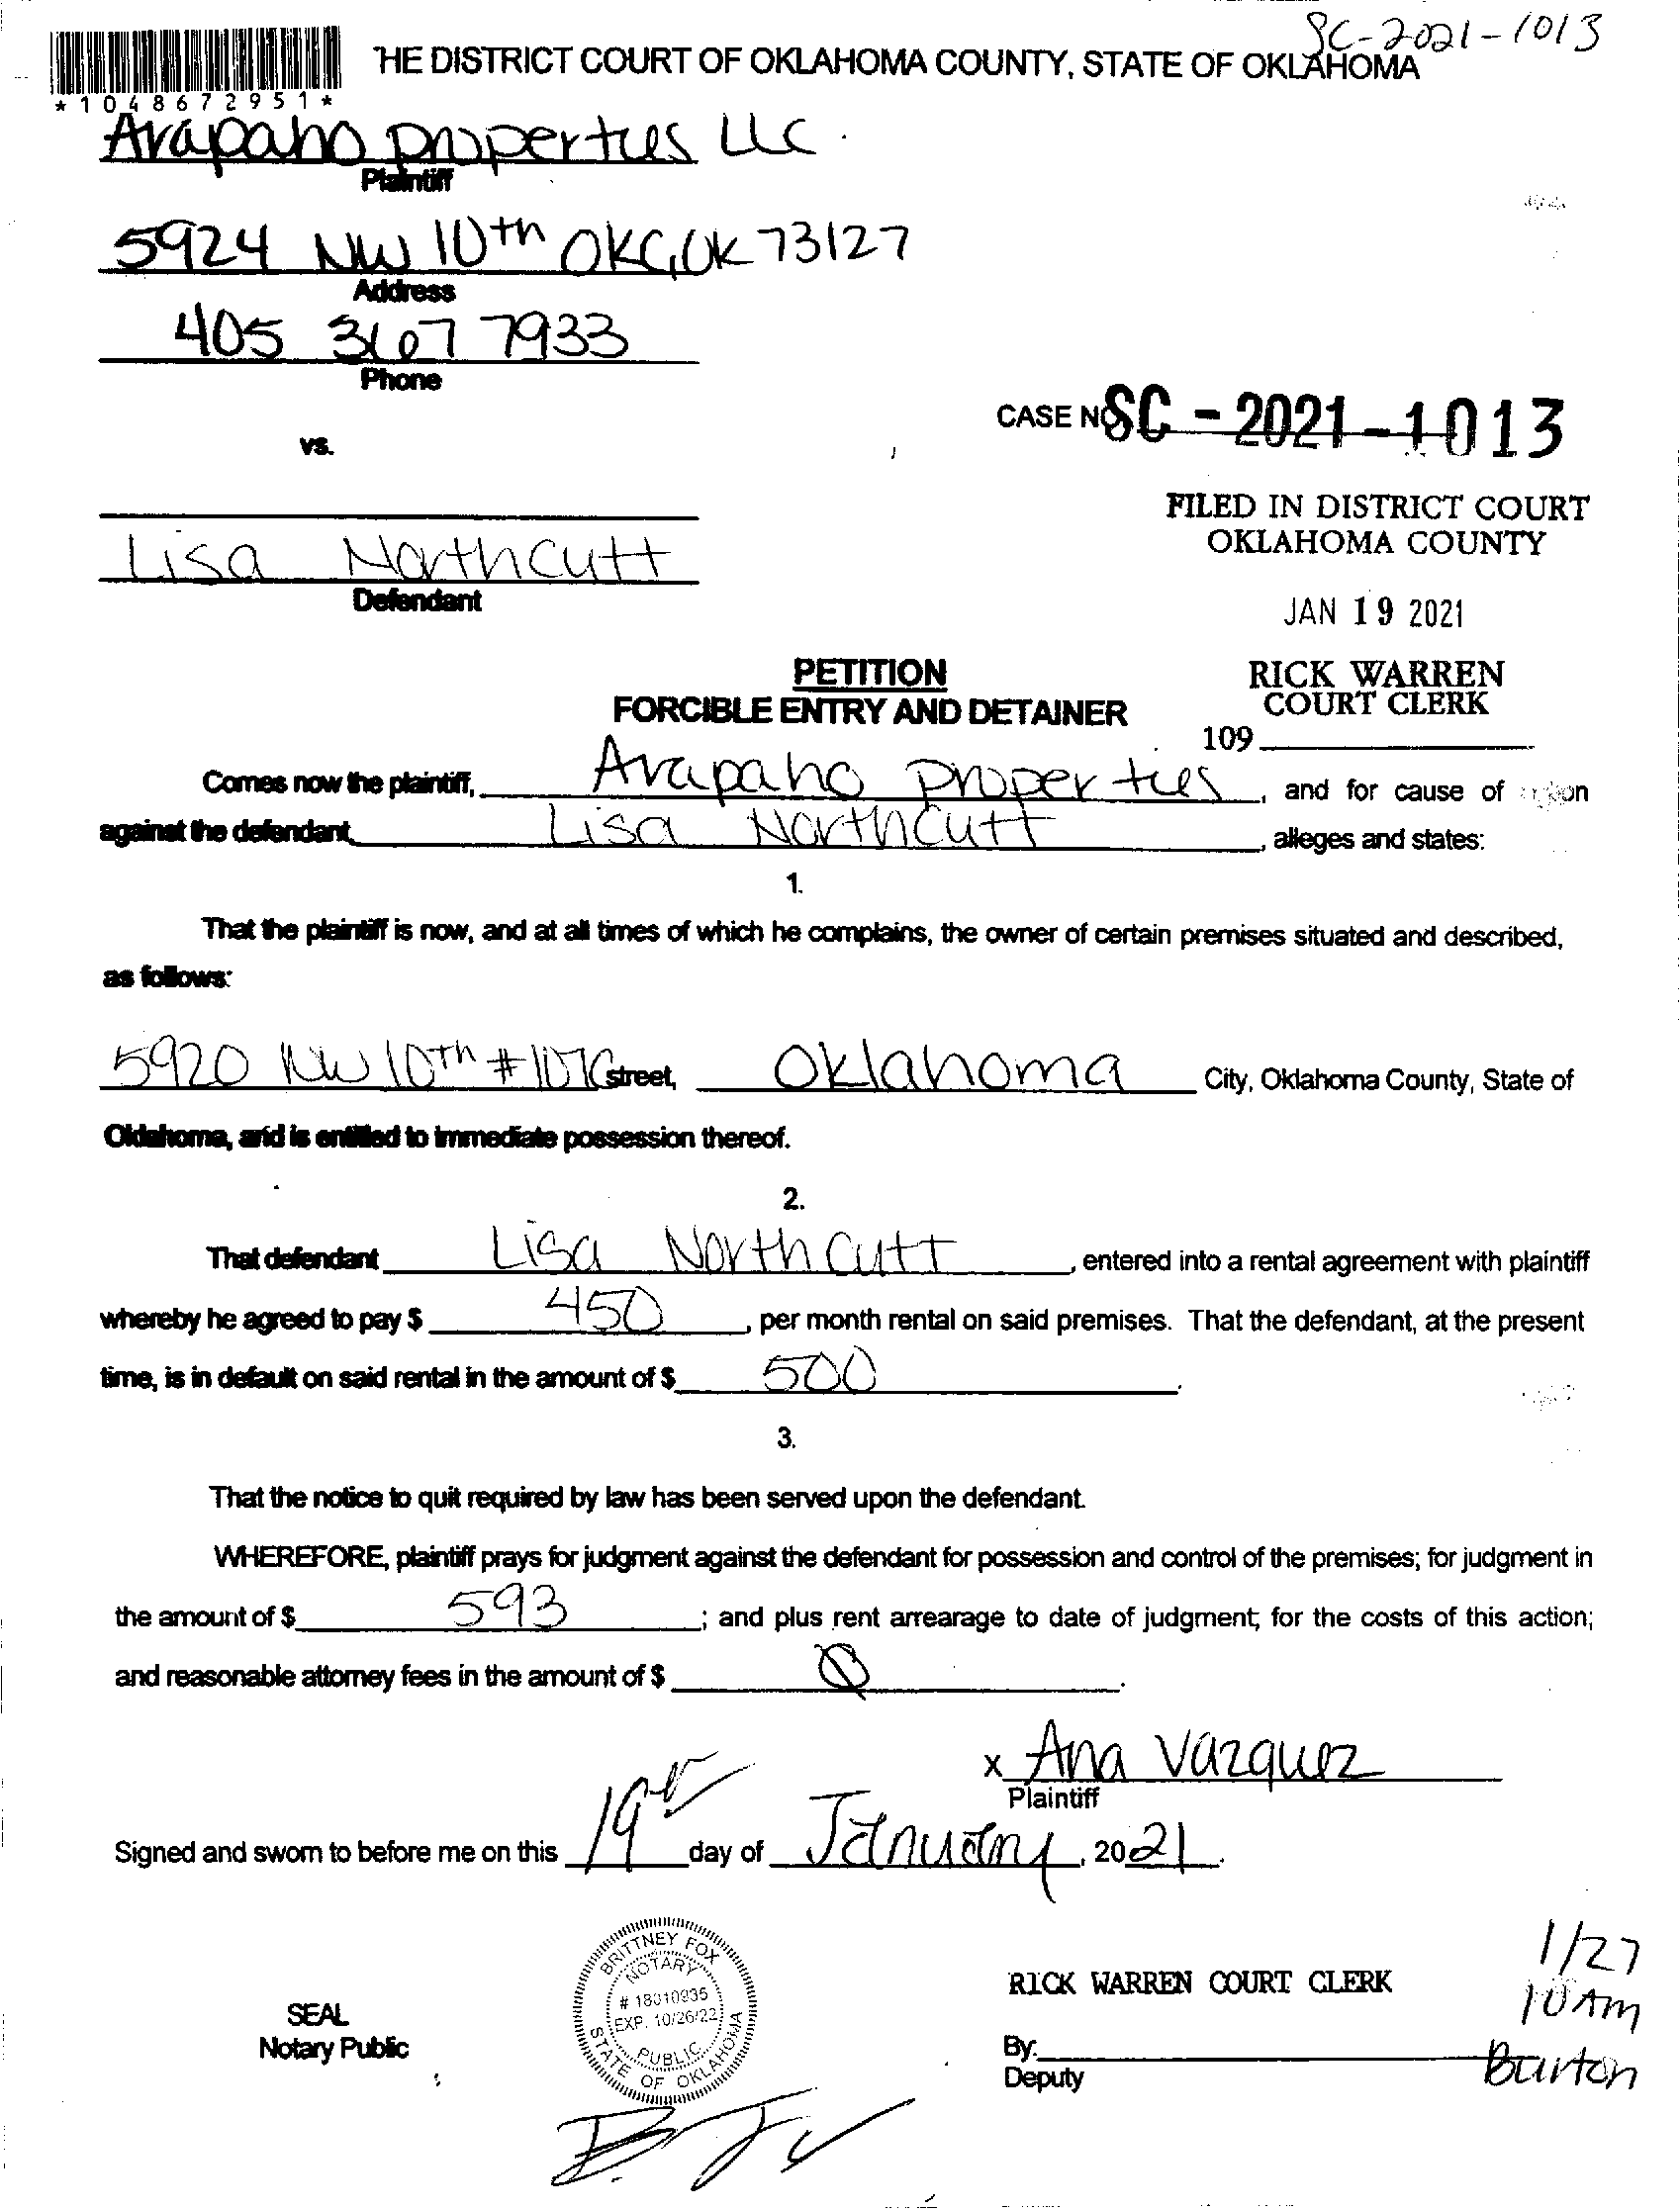 SC-2021-1013
THE DISTRICT COURT OF OKLAHOMA COUNTY, STATE OF OKLAHOMA
*1048672951*
Arapaho properties LLC.
Plaintiff
5924 NW 10th OKC, OK 73127
Address
405 367 7933
Phone
CASE NO SC - 2021 - 1013
vs.
FILED IN DISTRICT COURT
OKLAHOMA COUNTY
Lisa Northcutt
Defendant
JAN 19 2021
PETITION
FORCIBLE ENTRY AND DETAINER
RICK WARREN
COURT CLERK
109
Comes now the plaintiff, Arapaho properties, and for cause of action
against the defendant, Lisa Northcutt, alleges and states:
1.
That the plaintiff is now, and at all times of which he complains, the owner of certain premises situated and described,
as follows:
5920 NW 10th # 107C street, Oklahoma City, Oklahoma County, State of
Oklahoma, and is entitled to immediate possession thereof.
2.
That defendant Lisa Northcutt, entered into a rental agreement with plaintiff
whereby he agreed to pay $ 450, per month rental on said premises. That the defendant, at the present
time, is in default on said rental in the amount of $ 500.
3.
That the notice to quit required by law has been served upon the defendant.
WHEREFORE, plaintiff prays for judgment against the defendant for possession and control of the premises; for judgment in
the amount of $ 593; and plus rent arrearage to date of judgment; for the costs of this action;
and reasonable attorney fees in the amount of $ 0.
x Ana Vazquez
Plaintiff
Signed and sworn to before me on this 19th day of January, 2021.
BRITTNEY FOX
NOTARY
# 18010935
EXP. 10/26/22
PUBLIC
STATE OF OKLAHOMA
SEAL
Notary Public
RICK WARREN COURT CLERK
By:
Deputy
1/27
10 AM
Burton